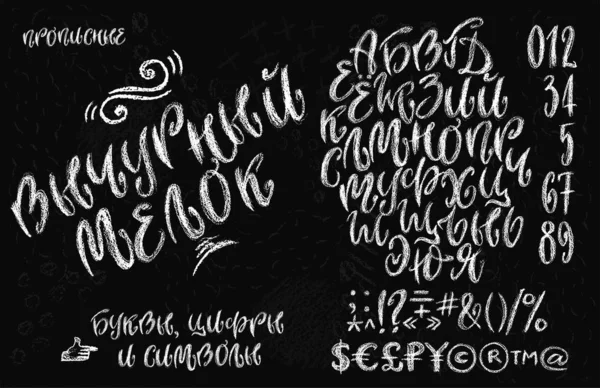 ПРОПИСНЫЕ
ВЫЧУРНЫЙ
МЕЛОК
БУКВЫ, ЦИФРЫ
И СИМВОЛЫ
АБВГД
ЕЁЖЗИЙ
КЛМНОПР
СТУФХЦ
ЧШЩЪЫЬ
ЭЮЯ
012
34
5
67
89
;:!?±=#&()/%
*^«»
$€£₽¥©®TM@